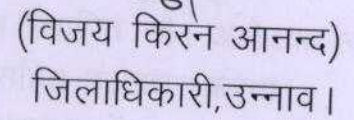 (विजय किरन आनन्द)
जिलाधिकारी,उन्नाव।